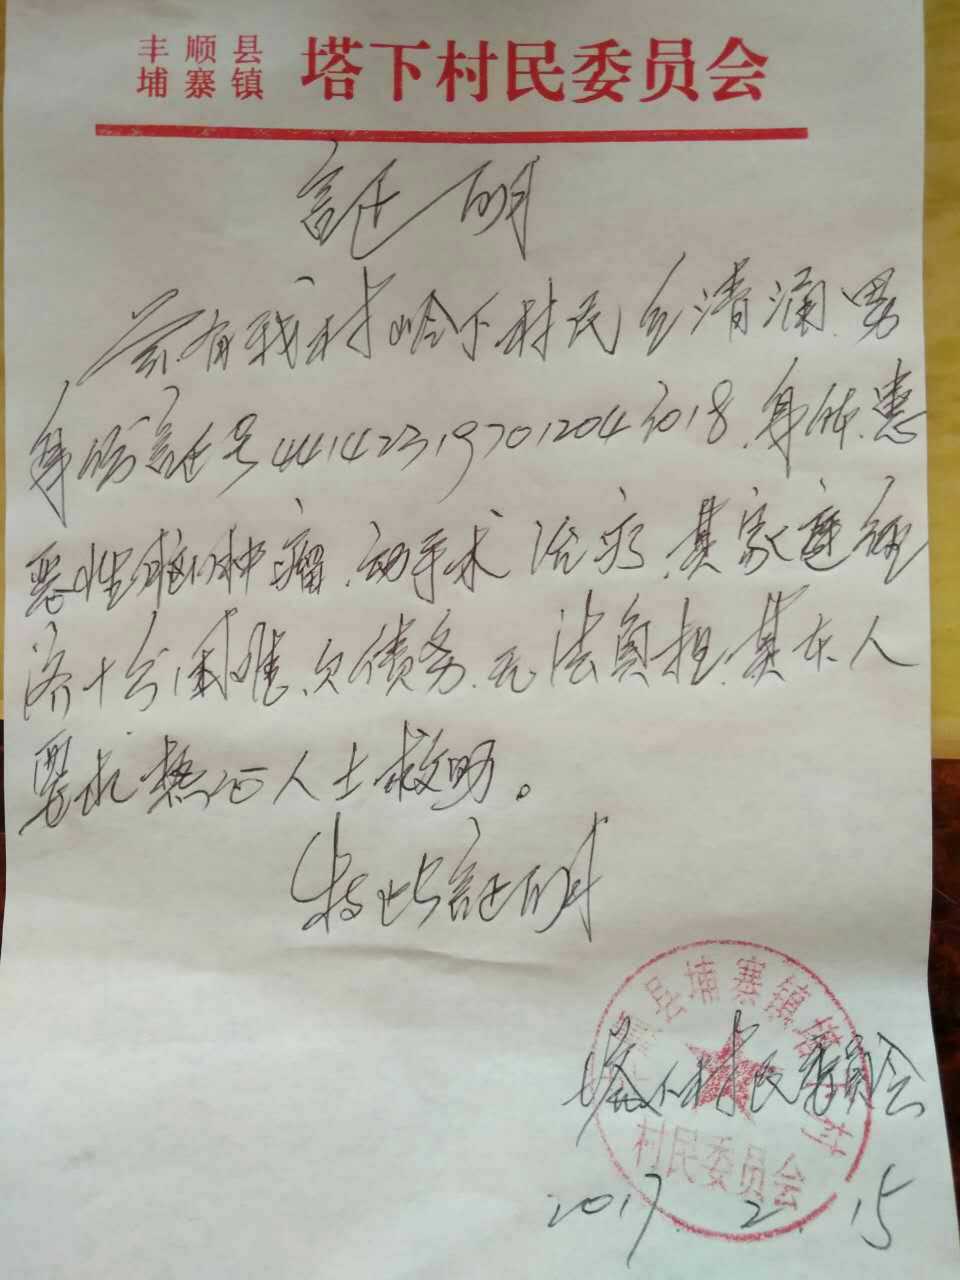 丰顺县
埔寨镇
塔下村民委员会
証明
兹有我村岭下村民 清涌,男
身份証号441423197012042018,身体患
恶性 肿瘤,动手术治疗,其家庭经
济十分困难,欠债务,无法负担,其本人
要求热心人士救助。
特此証明
塔下村民委员会
2017.2.15
县埔寨镇塔下村
村民委员会